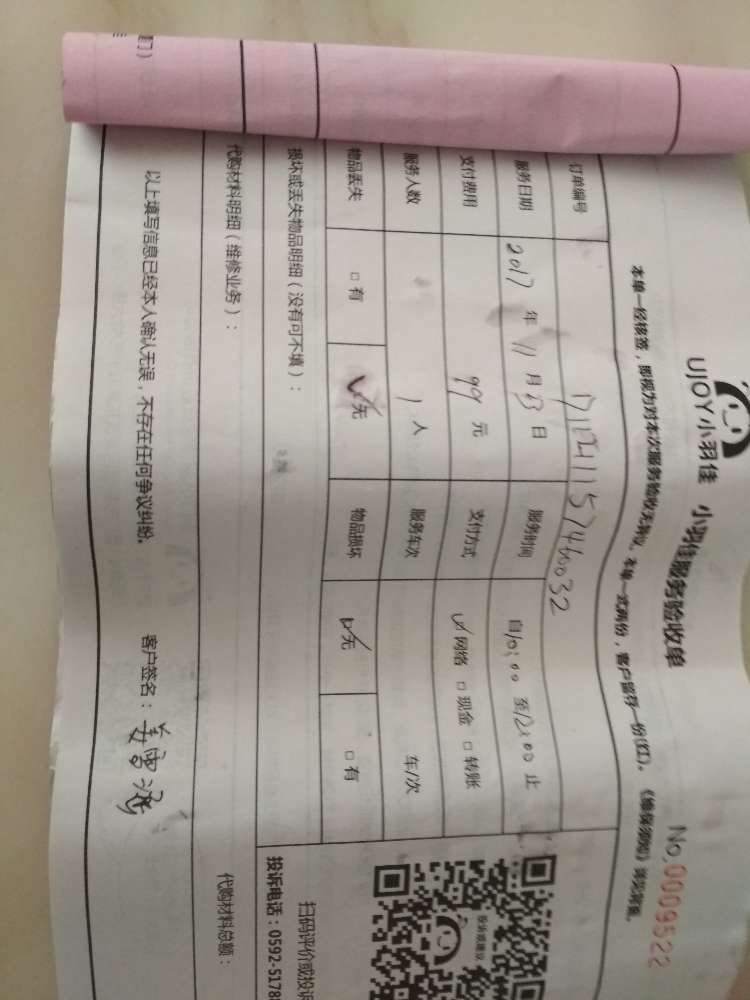 UJOY小羽佳 小羽佳服务验收单 No,0009522
本单一经核签，即视为对本次服务验收无异议。本单一式两份，客户留存一份(红)。
订单编号
服务日期 2017 年 11 月 日 服务时间 自10:00 至12:00 止
支付费用 99 元 支付方式 网络 □ 现金 □ 转账
服务人数 1 人 服务车次 车/次
物品丢失 □ 有 ✓无 物品损坏 ✓无 □ 有
损坏或丢失物品明细（没有可不填）：
扫码评价或投诉
投诉电话：0592-5178
代购材料明细（维修业务）： 代购材料总额：
以上填写信息已经本人确认无误，不存在任何争议纠纷。 客户签名：